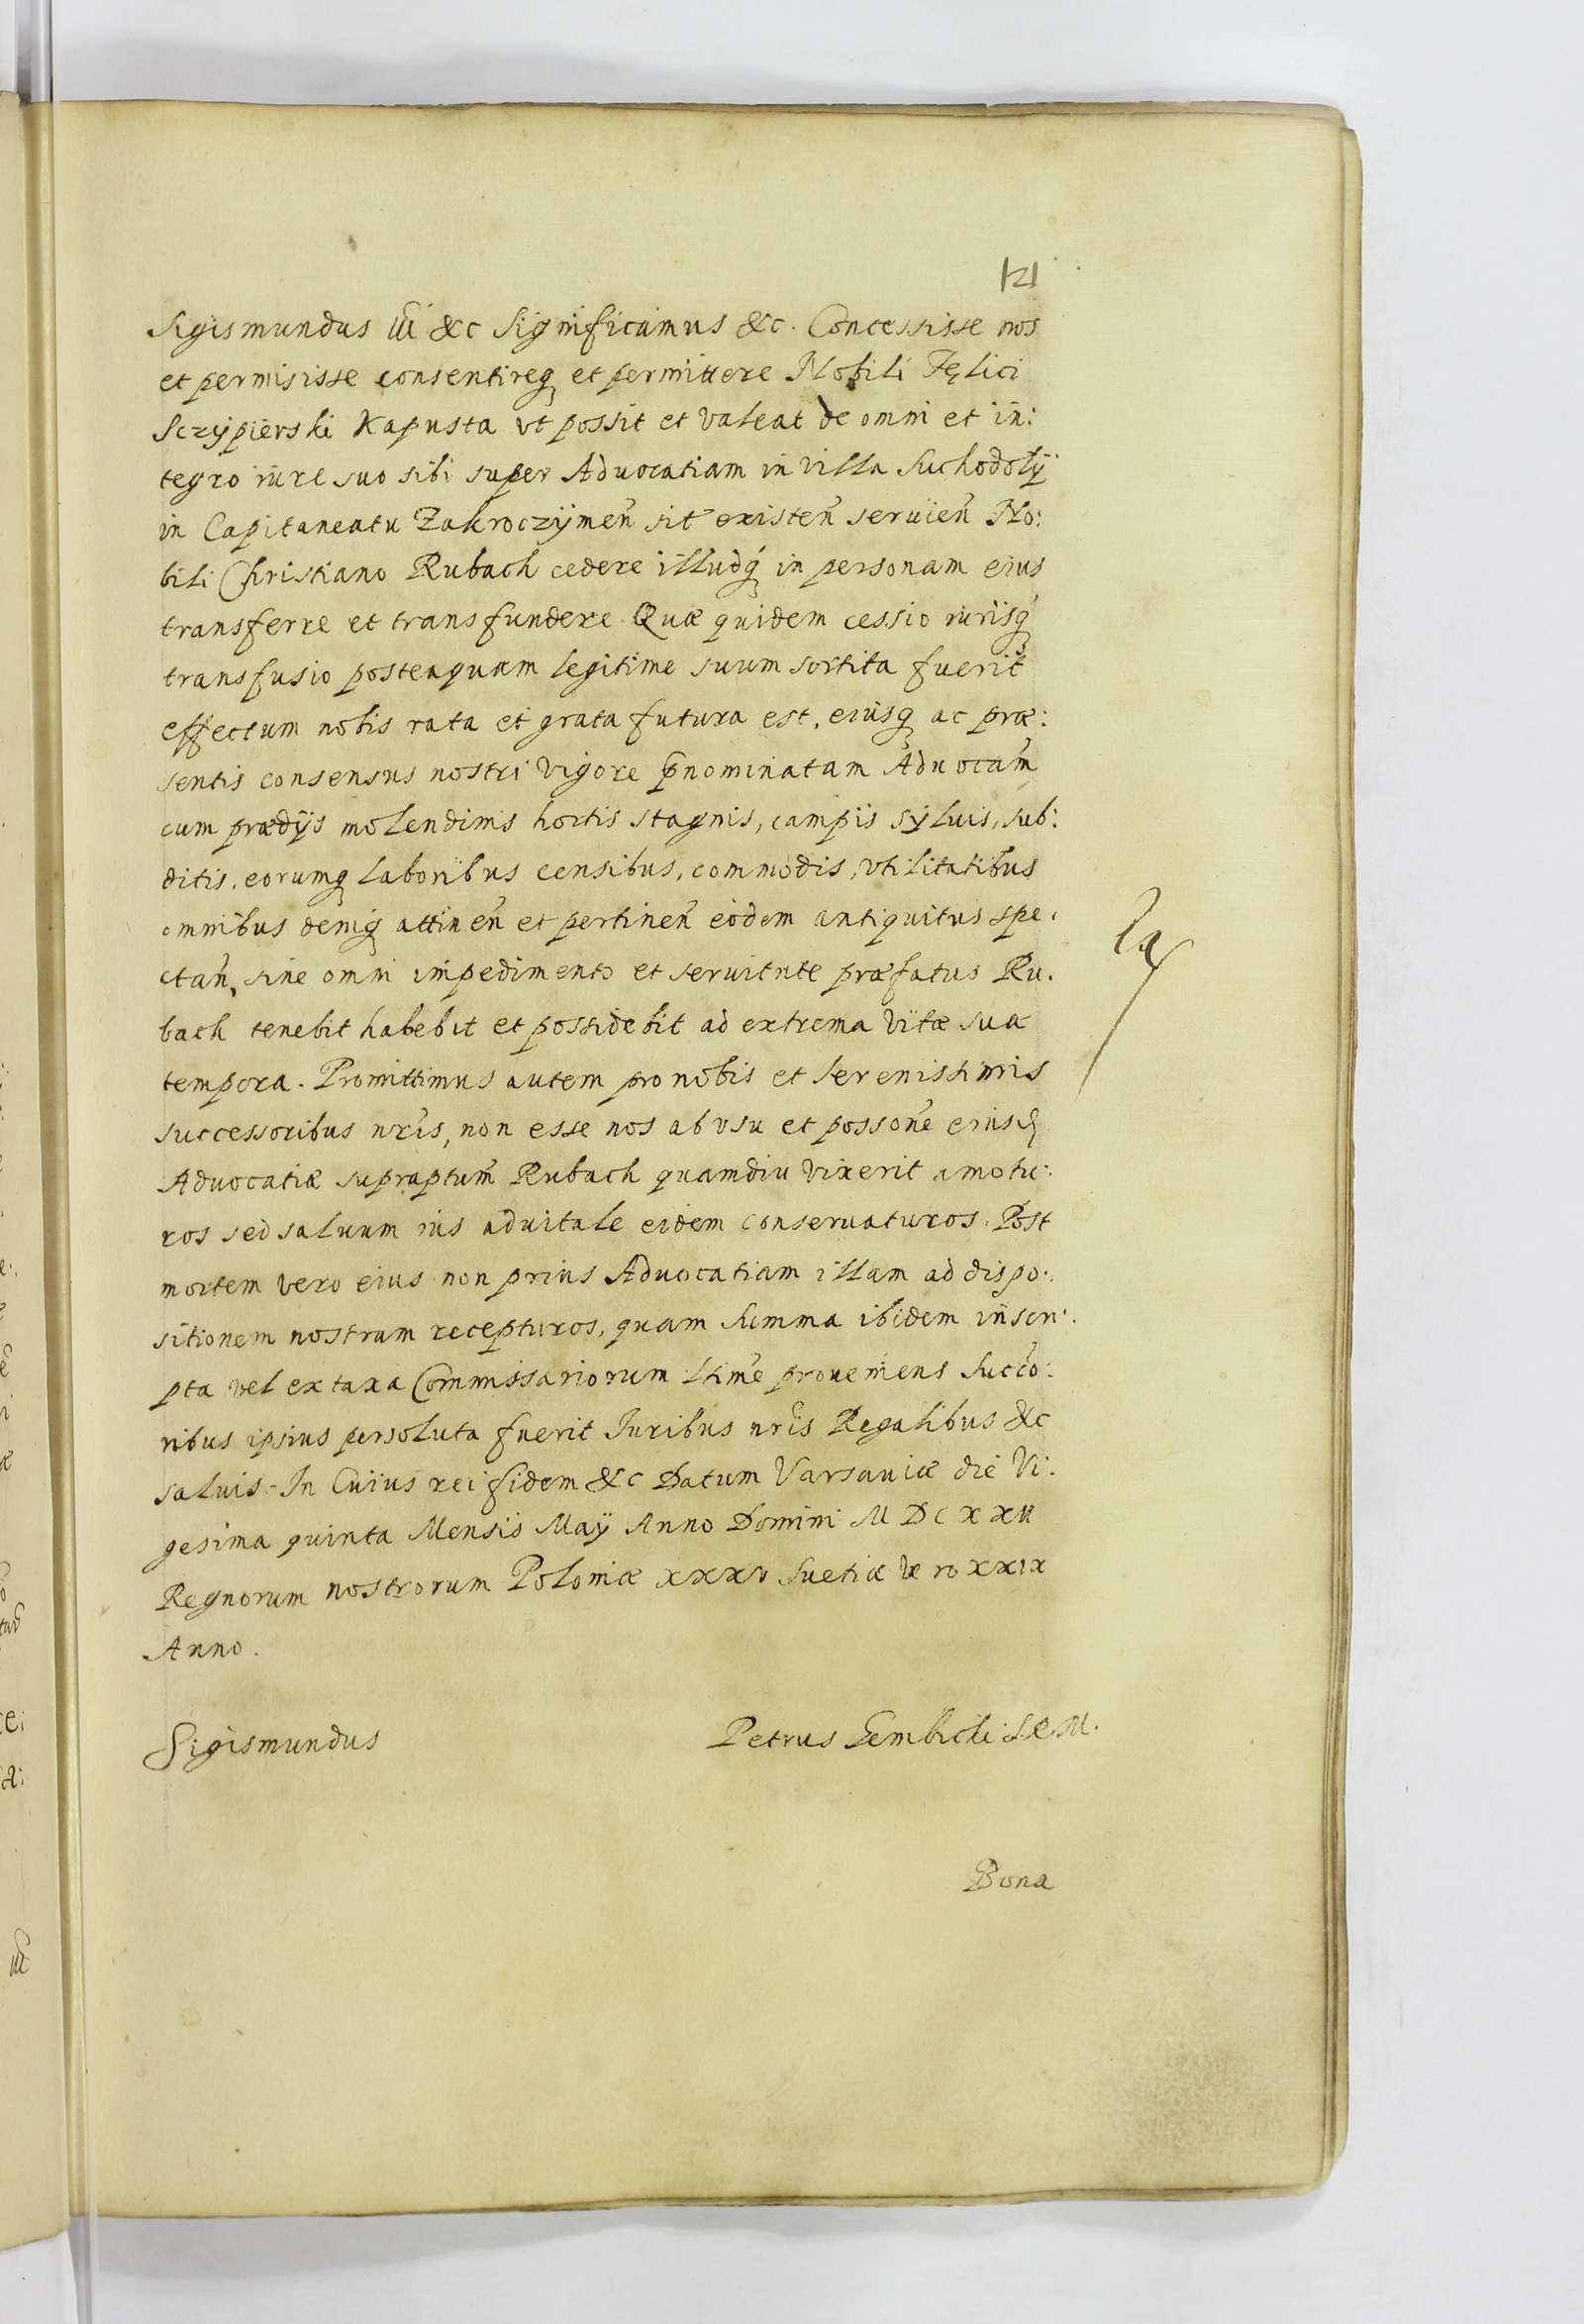 121
Sigismundus iii &c Significamus &c. Concessisse nos
et permisisse consentireq et permittere Nobili Felici
Sczÿpierski Kapusta vt possit et valeat de omni et in:
tegro iure suo sibi super Aduocatiam in villa Suchodolÿ
in Capitaneatu Zakroczÿmen̄ sit existen̄ seruien̄ No:
bili Christiano Rubach cedere illudq in personam eius
transferre et transfundere. Quæ quidem cessio iurisq
transfusio posteaquam legitime suum sortita fuerit
effectum nobis rata et grata futura est, eiusq ac præ:
sentis consensus nostri vigore p̄nominatam Aduocam̄
cum prædijs molendinis hortis stagnis, campis sÿluis, sub:
ditis, eorumq laboribus censibus, commodis, vtilitatibus
omnibus deniq attinen̄ et pertinen̄ eodem antiquitus spe:
ctan̄, sine omni impedimento et seruitute præfatus Ru.
bach tenebit habebit et possidebit ad extrema vitæ suæ
tempora. Promittimus autem pro nobis et Serenissimis
successoribus nr̄is, non esse nos ab vsu et posson̄e eiusd
Aduocatiæ supraptum̄ Rubach quamdiu vixerit amotu:
ros sed saluum ius aduitale eidem conseruaturos. Post
mortem vero eius non prius Aduocatiam illam ad dispo:
sitionem nostram recepturos, quam summa ibidem inscri:
pta vel ex taxa Commissariorum ltime proueniens Succo:
ribus ipsius persoluta fuerit Juribus nr̄is Regalibus &c
saluis. In Cuius rei fidem &c Datum Varsauiæ die Vi:
gesima quinta Mensis Maÿ Anno Domini M D C x x ii
Regnorum nostrorum Poloniæ xxxv Suetiæ vero xxix
Anno.
Sigismundus
Petrus Gembicki S. R. M.
Bona